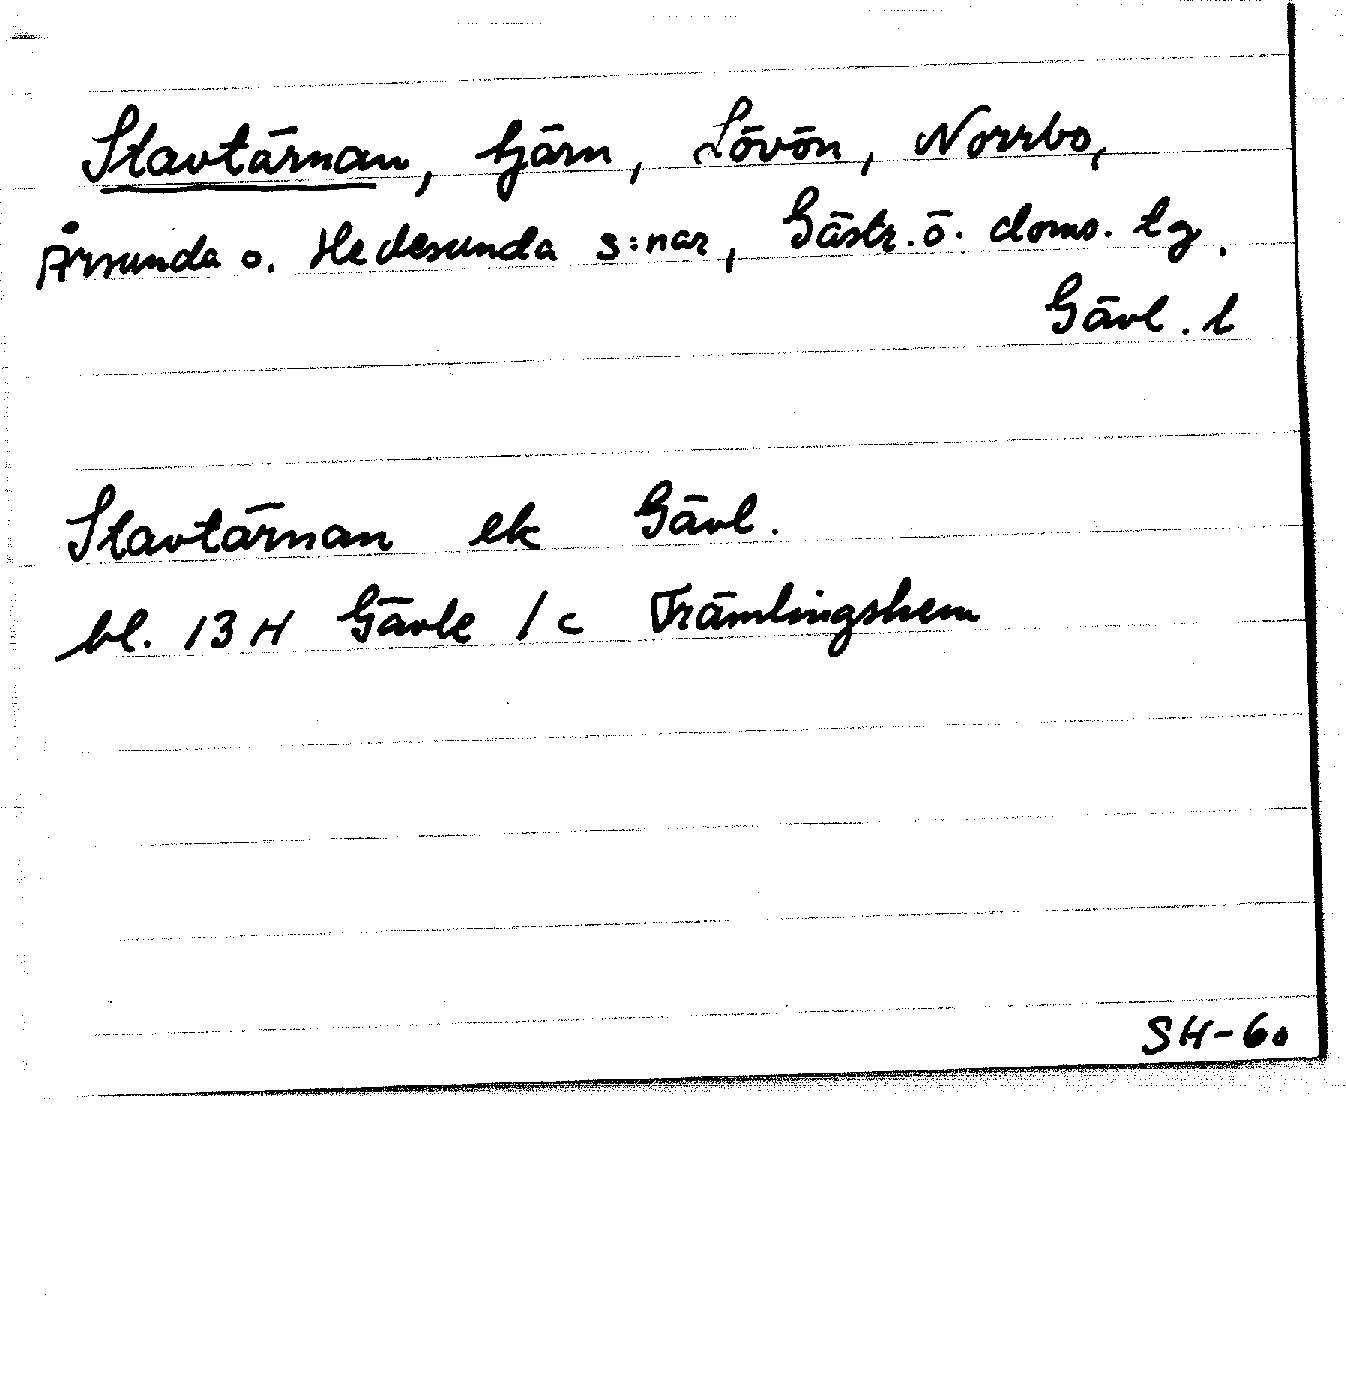 Stavtärnan, tjärn, Lövön, Norrbo,
Årsunda o. Hedesunda s:nar, Gästr. ö. doms. tg,
Gävl. l
Stavtärnan ek Gävl.
bl. 13 H Gävle 1 c Främlingshem
SH-60